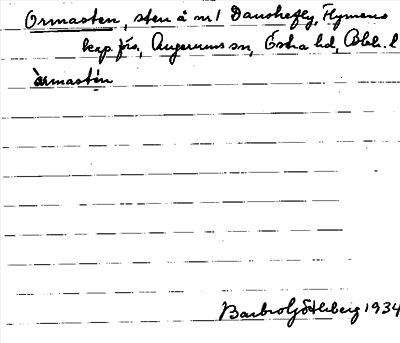 Ormasten, sten å nr 1 Danskefly, Flymens
kap. frs, Augerums sn, Östra hd, Blek. l
òrmastén
Barbro Götlberg 1934